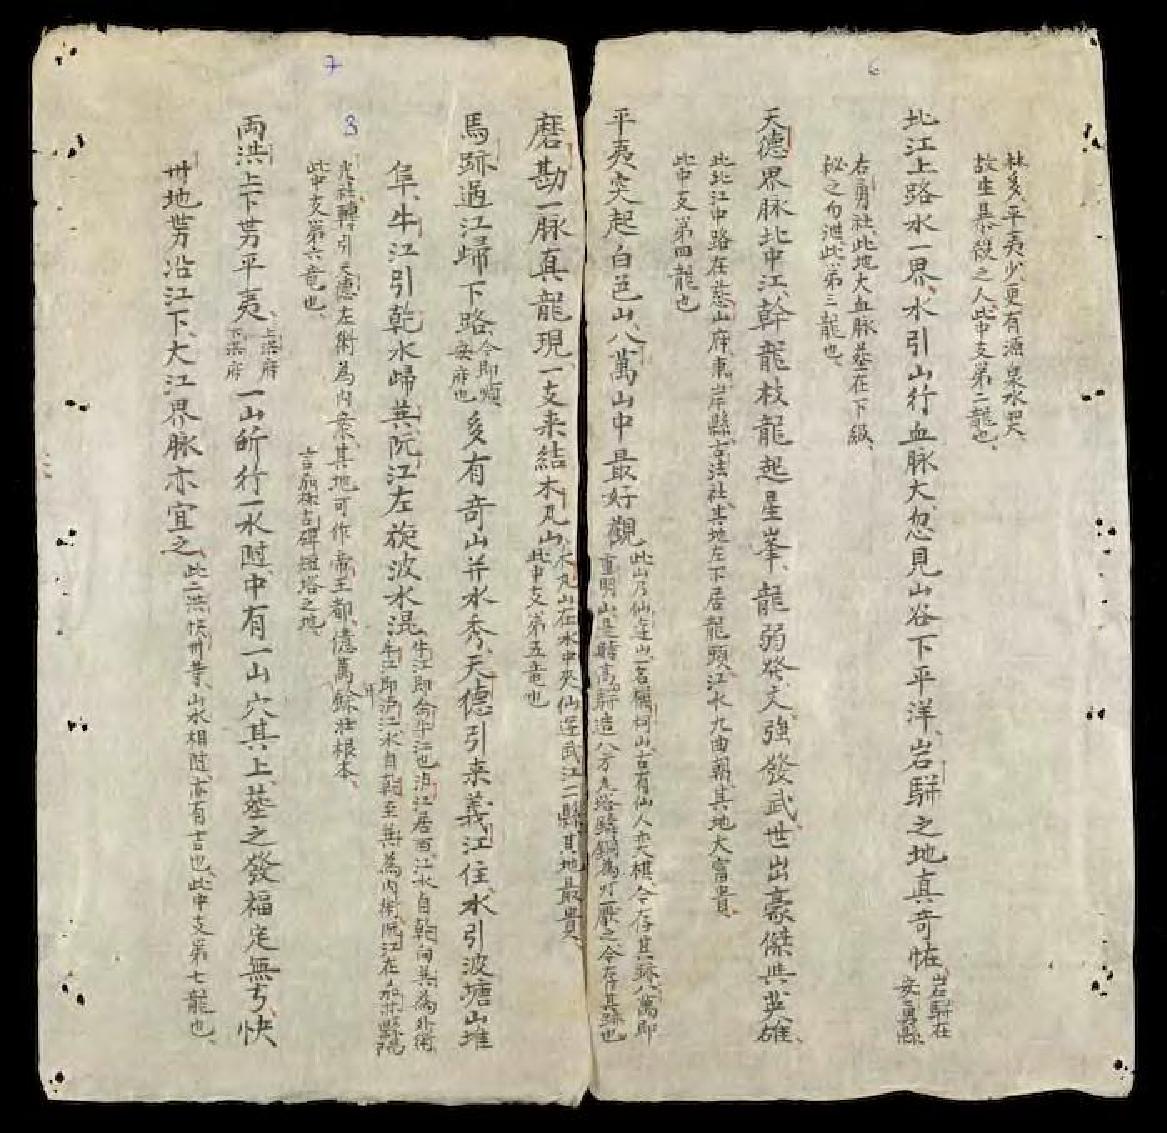 6
林多平夷少更有源泉水界、
故生暴殺之人、此中支第二龍也、
北江上路水一界、水引山行血脉大、忽見山谷下平洋、岩騈之地真奇恠、
岩騈在
安勇縣、
右勇社此地大血脉墓在下級、
秘之勿泄、此第三龍也、
天德界脉北中江、幹龍枝龍起星峯、龍弱發文強發武、世出豪傑共英雄、
此北江中路在慈山府東岸縣古法社、其地左下居龍頭、江水九曲朝、其地大富貴、
此中支第四龍也
平夷突起白邑山、八萬山中最好觀
此山乃仙遊山一名爛柯山、古有仙人奕棋、今存其跡、八萬即
重明山是時高騈造八方瓦塔鑄銅為 厭之今存其跡也
7
磨勘一脉真龍現、一支来結木丸山、
木丸山在水中央仙遊武江二縣、其地最貴、
此中支第五竜也
馬跡過江歸下路
今即順
安府也
多有奇山并水秀、天德引来義江住、水引波塘山堆
阜、牛江引乾水歸巽、阮江左旋波水混、
牛江即 牛江也 江居西江水自乾向巽為外術
牛江即 江水自乾至巽為内術阮江在 縣
3
光社轉引天德左術為内案其地可作帝王都、億萬餘壯根本、
此中支第六竜也、
古 碑 塔之地、
兩洪上下势平夷、
上洪府
下洪府
一山所行一水隨、中有一山穴其上、葬之發福定無亏、快
州地势沿江下、大江界脉亦宜之、
此二洪快州葉、山水相隨、亦有吉也、此中支第七龍也、